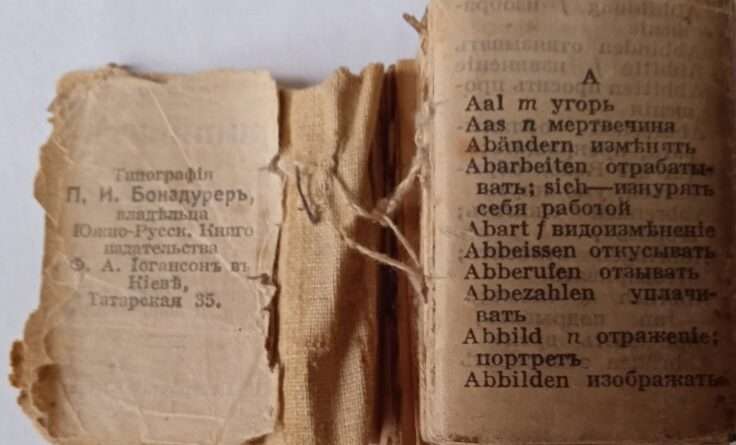 Типографія
П. И. Бонадурерь,
владѣльца
Южно-Русск. Книго
издательства
Ф. А. Іогансонъ въ
Кіевѣ,
Татарская 35.
A
Aal m угорь
Aas n мертвечина
Abändern измѣнять
Abarbeiten отрабаты-
вать; sich—изнурять
себя работой
Abart f видоизмѣненіе
Abbeissen откусывать
Abberufen отзывать
Abbezahlen уплачи-
вать
Abbild n отраженіе;
портретъ
Abbilden изображать